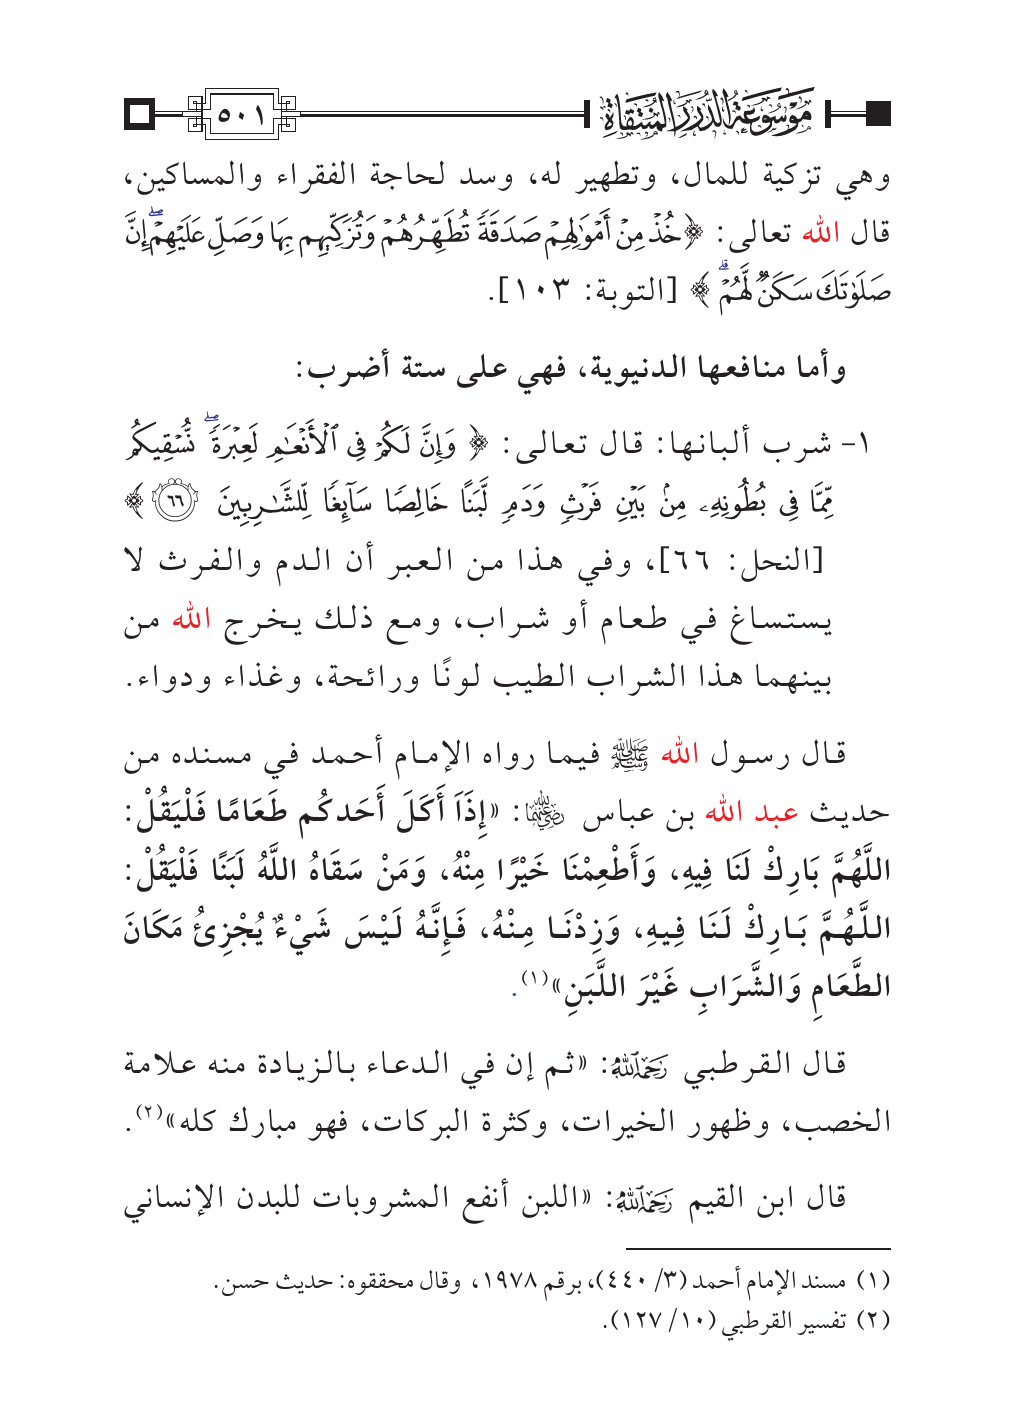 موسوعة الدرر المنتقاة
٥٠١
وهي تزكية للمال، وتطهير له، وسد لحاجة الفقراء والمساكين،
قال الله تعالى: ﴿خُذْ مِنْ أَمْوَٰلِهِمْ صَدَقَةً تُطَهِّرُهُمْ وَتُزَكِّيهِم بِهَا وَصَلِّ عَلَيْهِمْ ۖ إِنَّ
صَلَوٰتَكَ سَكَنٌ لَّهُمْ ۗ ﴾ [التوبة: ١٠٣].
وأما منافعها الدنيوية، فهي على ستة أضرب:
١- شرب ألبانها: قال تعالى: ﴿ وَإِنَّ لَكُمْ فِى ٱلْأَنْعَـٰمِ لَعِبْرَةً ۖ نُّسْقِيكُم
مِّمَّا فِى بُطُونِهِۦ مِنۢ بَيْنِ فَرْثٍ وَدَمٍ لَّبَنًا خَالِصًا سَآئِغًا لِّلشَّـٰرِبِينَ ٦٦ ﴾
[النحل: ٦٦]، وفي هذا من العبر أن الدم والفرث لا
يستساغ في طعام أو شراب، ومع ذلك يخرج الله من
بينهما هذا الشراب الطيب لونًا ورائحة، وغذاء ودواء.
قال رسول الله ﷺ فيما رواه الإمام أحمد في مسنده من
حديث عبد الله بن عباس رضي الله عنهما: «إِذَاَ أَكَلَ أَحَدكُم طَعَامًا فَلْيَقُلْ:
اللَّهُمَّ بَارِكْ لَنَا فِيهِ، وَأَطْعِمْنَا خَيْرًا مِنْهُ، وَمَنْ سَقَاهُ اللَّهُ لَبَنًا فَلْيَقُلْ:
اللَّهُمَّ بَارِكْ لَنَا فِيهِ، وَزِدْنَا مِنْهُ، فَإِنَّهُ لَيْسَ شَيْءٌ يُجْزِئُ مَكَانَ
الطَّعَامِ وَالشَّرَابِ غَيْرَ اللَّبَنِ»(١).
قال القرطبي رحمه الله: «ثم إن في الدعاء بالزيادة منه علامة
الخصب، وظهور الخيرات، وكثرة البركات، فهو مبارك كله»(٢).
قال ابن القيم رحمه الله: «اللبن أنفع المشروبات للبدن الإنساني
(١) مسند الإمام أحمد (٣/ ٤٤٠)، برقم ١٩٧٨، وقال محققوه: حديث حسن.
(٢) تفسير القرطبي (١٠/ ١٢٧).